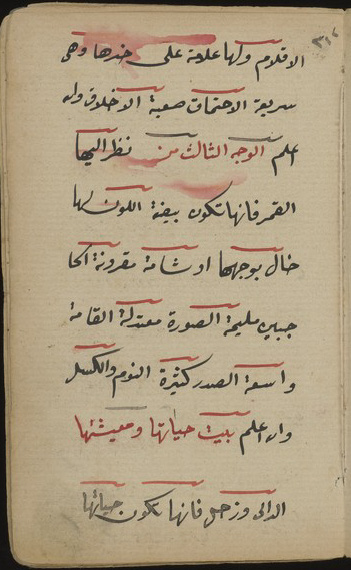 الاقلام ولها علامة على خدرها وهى
سريعة الاحتمات صعبة الاخلاق والله
اعلم الوجه الثالث من نظر اليها
القمر فانها تكون بيضة اللون لها
خال بوجهها او شامة مقرونة الحا
جبين مليحة الصورة معتدلة القامة
واسعة الصدر كثيرة النوم والكسل
والله اعلم بيت حياتها ومعيشتها
الدالى وزحل فانها تكون حياتها